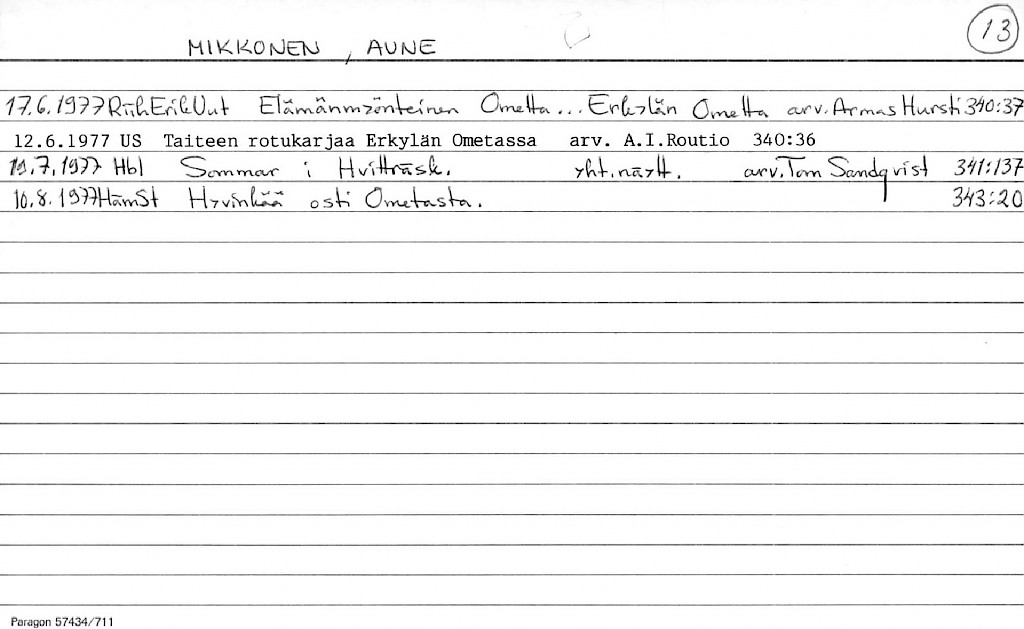 13
MIKKONEN, AUNE
17.6.1977 RiihErikUut Elämänmyönteinen Ometta... Erkylän Ometta arv. Armas Hursti 340:37
12.6.1977 US Taiteen rotukarjaa Erkylän Ometassa arv. A.I.Routio 340:36
19.7.1977 Hbl Sommar i Hvitträsk. yht.näytt. arv. Tom Sandqvist 341:137
10.8.1977 HämSt Hyvinkää osti Ometasta. 343:20
Paragon 57434/711